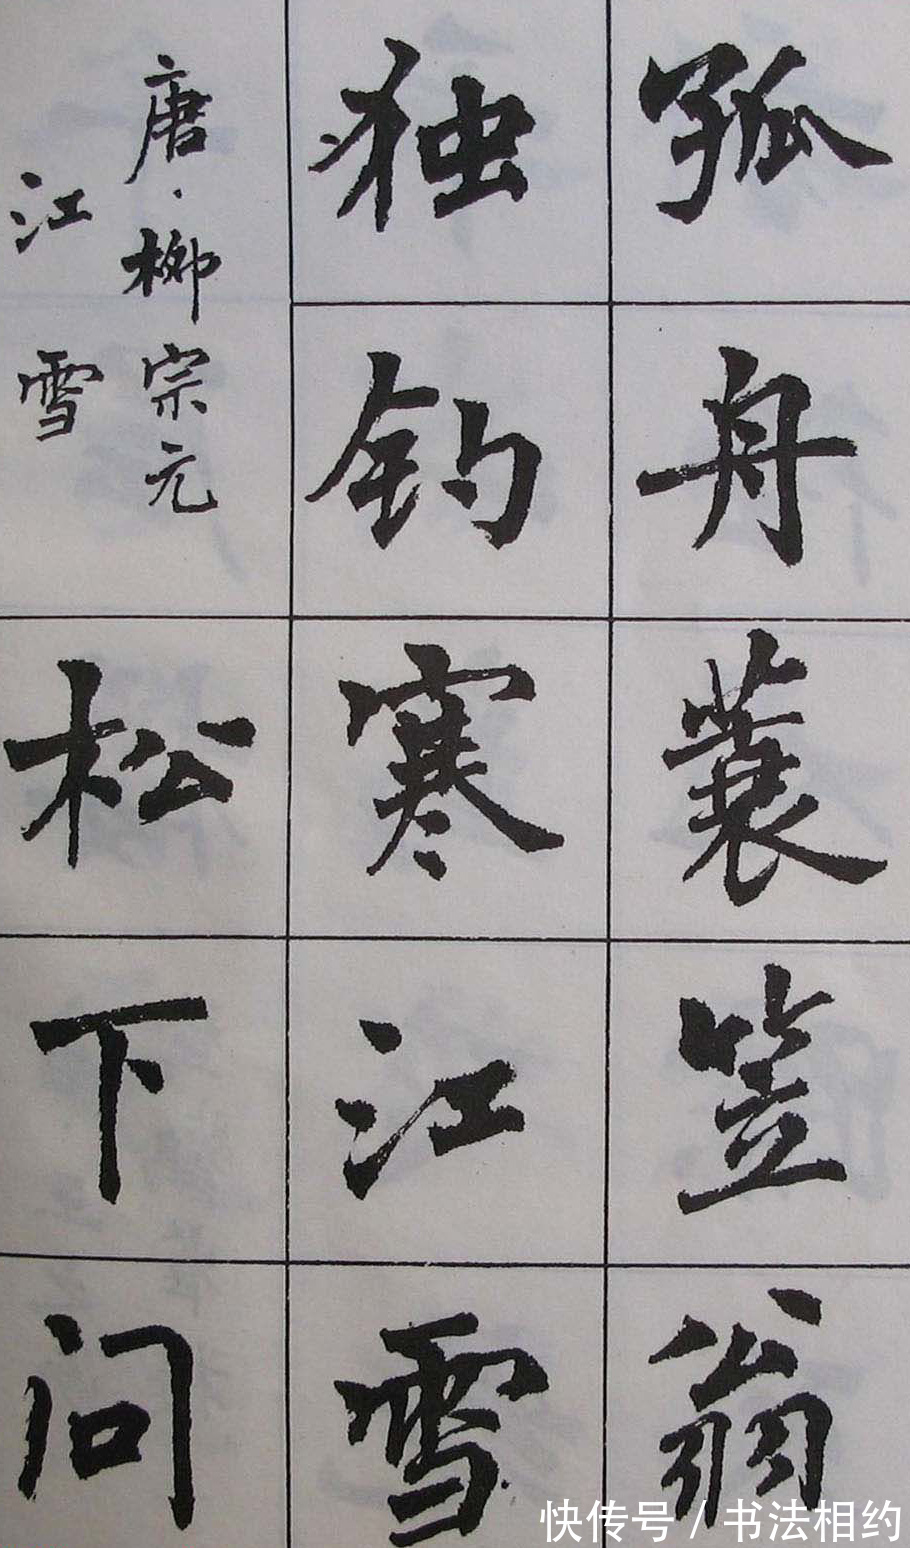 孤舟蓑笠翁
独钓寒江雪
唐·柳宗元
江雪
松下问
快传号/书法相约